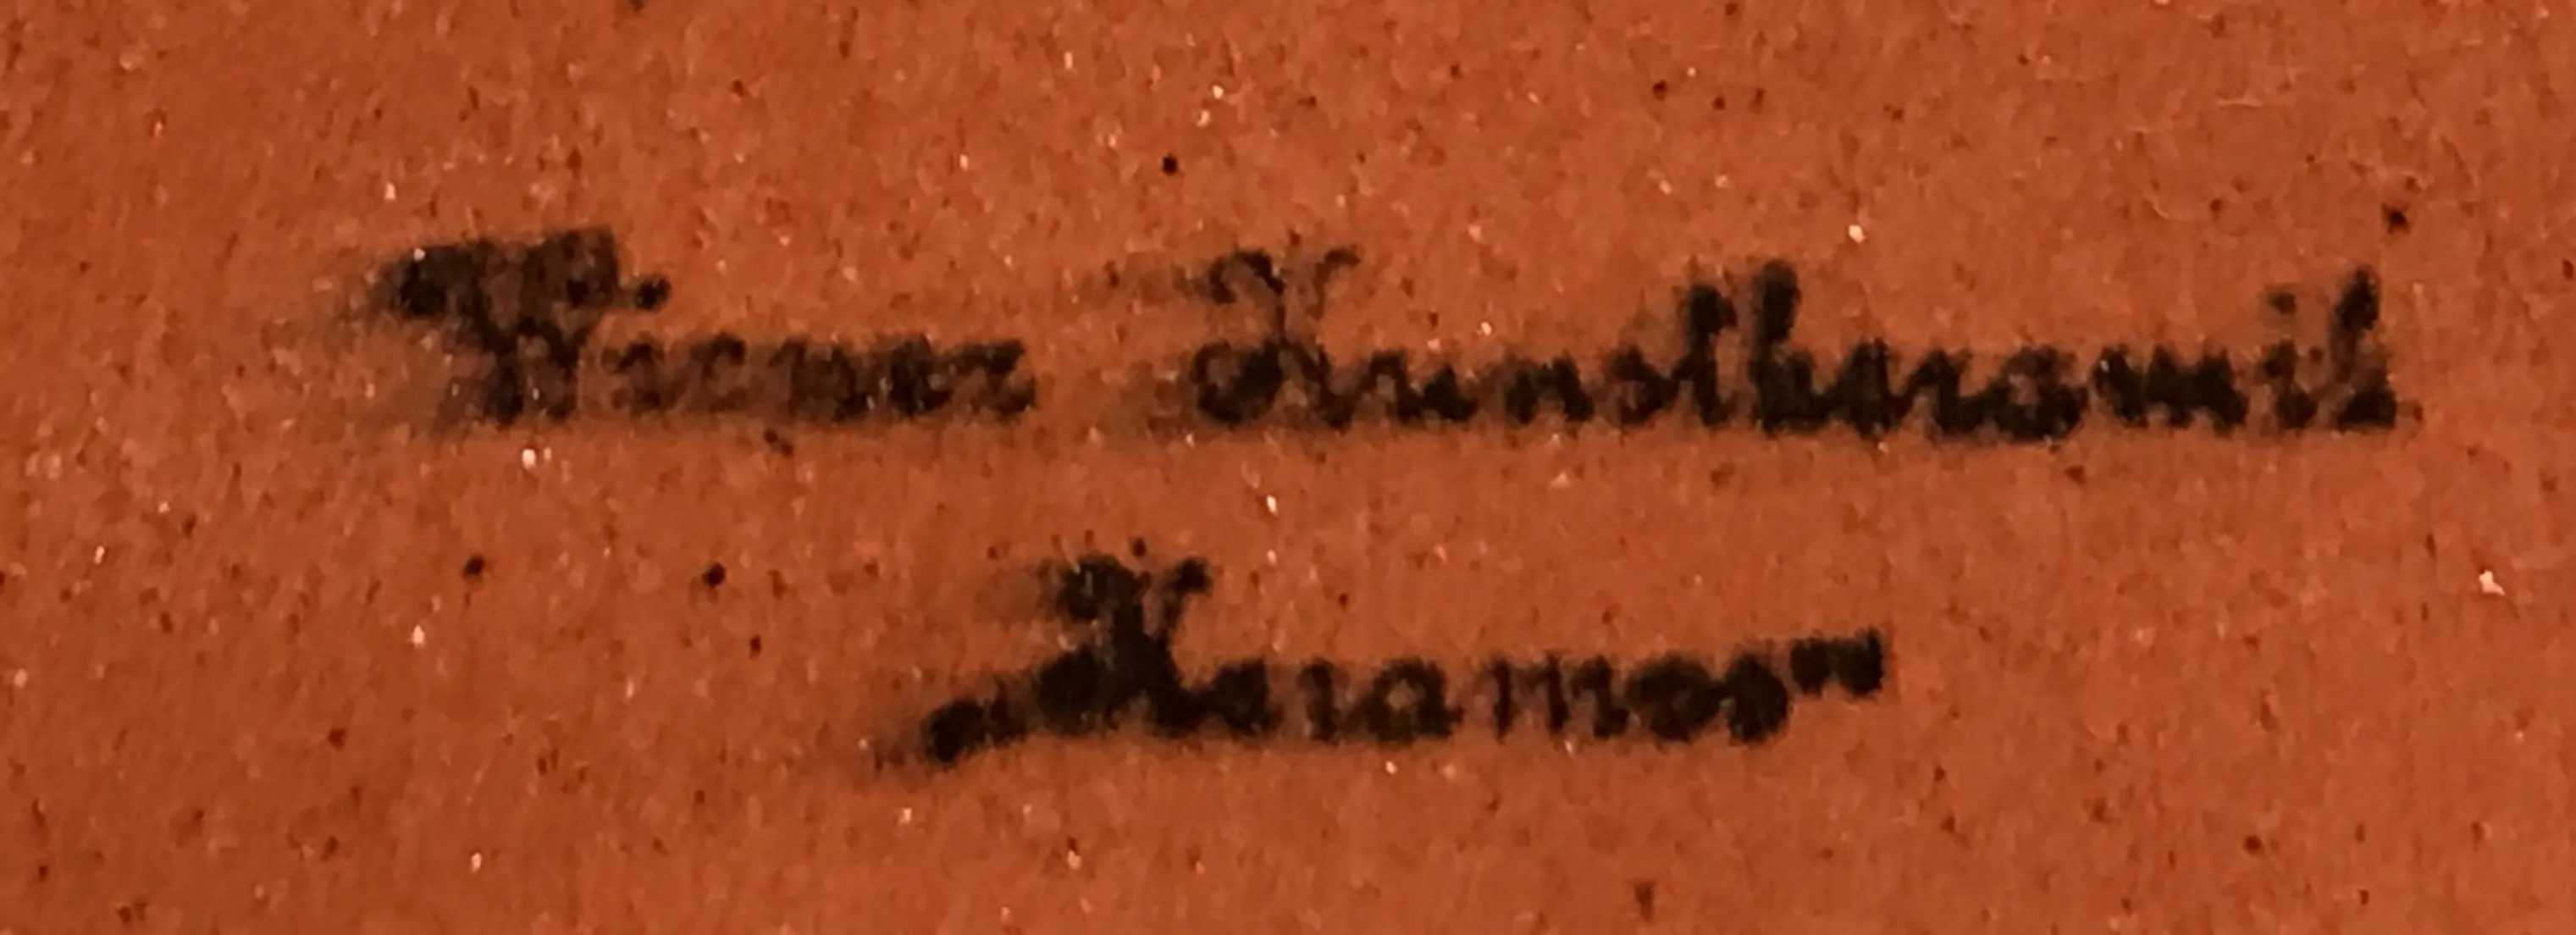 Wiener Kunstkeramik
"Keramos"